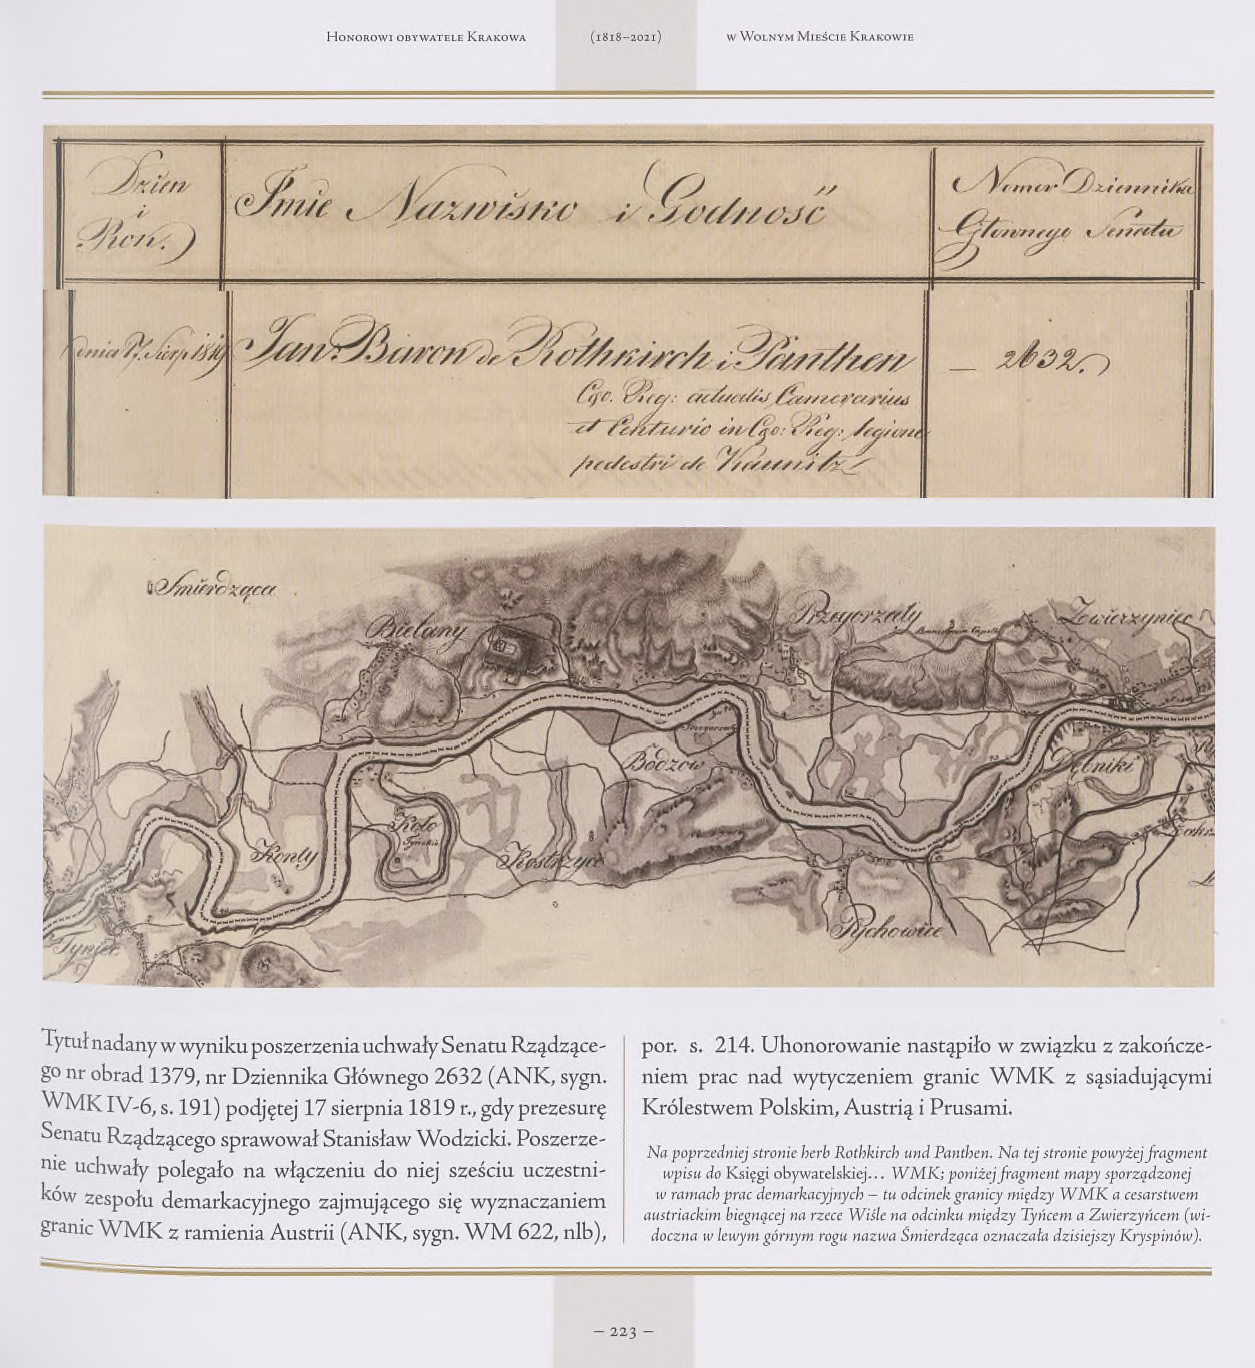 Honorowi obywatele Krakowa (1818–2021) w Wolnym Mieście Krakowie
Dzien
i
Rok.
Imie Nazwisko i Godność
Nomer Dziennika
Głownego Senatu
dnia 17. Sierp 1819
Jan Baron de Rothkirch i Panthen
— 2632.
Cgo. Reg: actualis Camerarius
et Centurio in Cgo: Reg: legione
pedestri de Kaunitz
Smierdząca
Bielany
Przegorzały
Zwierzyniec
Bodzow
Dębniki
Koło
Tynieckie
Konty
Kostrzyce
Pychowice
Tyniec
Tytuł nadany w wyniku poszerzenia uchwały Senatu Rządzące-
go nr obrad 1379, nr Dziennika Głównego 2632 (ANK, sygn.
WMK IV-6, s. 191) podjętej 17 sierpnia 1819 r., gdy prezesurę
Senatu Rządzącego sprawował Stanisław Wodzicki. Poszerze-
nie uchwały polegało na włączeniu do niej sześciu uczestni-
ków zespołu demarkacyjnego zajmującego się wyznaczaniem
granic WMK z ramienia Austrii (ANK, sygn. WM 622, nlb),
por. s. 214. Uhonorowanie nastąpiło w związku z zakończe-
niem prac nad wytyczeniem granic WMK z sąsiadującymi
Królestwem Polskim, Austrią i Prusami.
Na poprzedniej stronie herb Rothkirch und Panthen. Na tej stronie powyżej fragment
wpisu do Księgi obywatelskiej… WMK; poniżej fragment mapy sporządzonej
w ramach prac demarkacyjnych – tu odcinek granicy między WMK a cesarstwem
austriackim biegnącej na rzece Wiśle na odcinku między Tyńcem a Zwierzyńcem (wi-
doczna w lewym górnym rogu nazwa Śmierdząca oznaczała dzisiejszy Kryspinów).
– 223 –